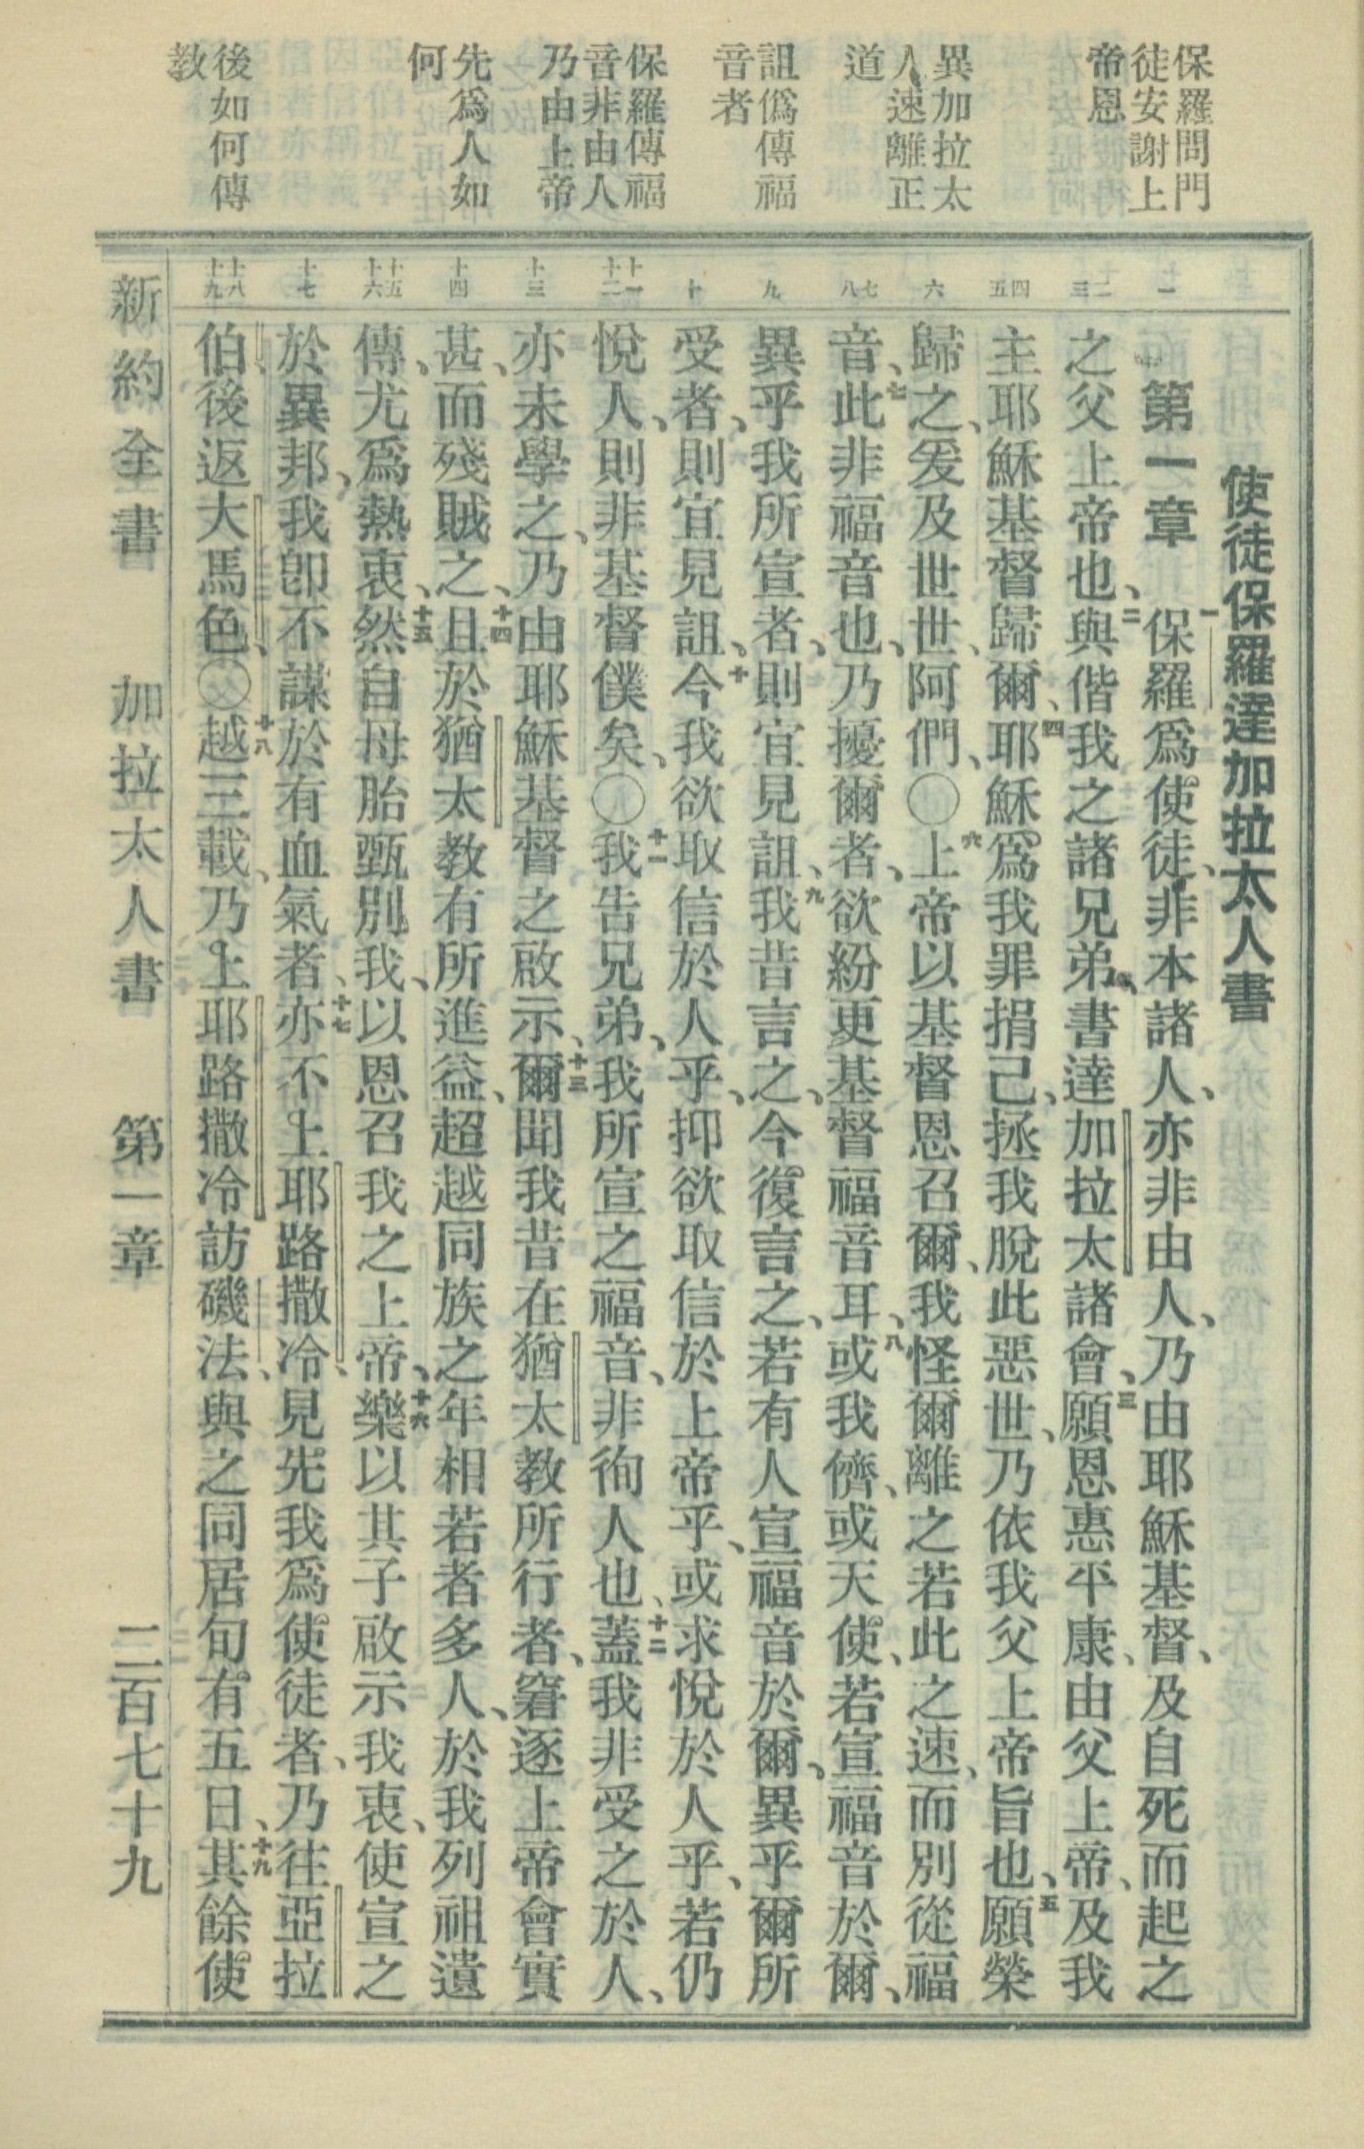 保羅問門
徒安謝上
帝恩
異加拉太
人速離正
道
詛僞傳福
音者
保羅傳福
音非由人
乃由上帝
先爲人如
何
後如何傳
教
一
二
三
四
五
六
七
八
九
十
十一
十二
十三
十四
十五
十六
十七
十八
十九
使徒保羅達加拉太人書
第一章 一保羅爲使徒、非本諸人、亦非由人、乃由耶穌基督、及自死而起之
之父上帝也、二與偕我之諸兄弟、書達加拉太諸會、三願恩惠平康、由父上帝、及我
主耶穌基督歸爾、四耶穌爲我罪捐己、拯我脫此惡世、乃依我父上帝旨也、五願榮
歸之、爰及世世、阿們、〇六上帝以基督恩召爾、我怪爾離之若此之速、而別從福
音、七此非福音也、乃擾爾者、欲紛更基督福音耳、八或我儕、或天使、若宣福音於爾、
異乎我所宣者、則宜見詛、九我昔言之、今復言之、若有人宣福音於爾、異乎爾所
受者、則宜見詛、十今我欲取信於人乎、抑欲取信於上帝乎、或求悅於人乎、若仍
悅人、則非基督僕矣、〇十一我告兄弟、我所宣之福音、非徇人也、十二蓋我非受之於人、
亦未學之、乃由耶穌基督之啟示、十三爾聞我昔在猶太教所行者、窘逐上帝會實
甚、而殘賊之、十四且於猶太教有所進益、超越同族之年相若者多人、於我列祖遺
傳、尤爲熱衷、十五然自母胎甄別我、以恩召我之上帝、十六樂以其子啟示我衷、使宣之
於異邦、我卽不謀於有血氣者、十七亦不上耶路撒冷、見先我爲使徒者、乃往亞拉
伯、後返大馬色、〇十八越三載、乃上耶路撒冷訪磯法、與之同居旬有五日、十九其餘使
新約全書 加拉太人書 第一章 二百七十九